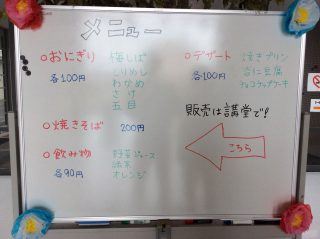 メニュー
○おにぎり
各100円
梅しば
とりめし
わかめ
さけ
五目
○デザート
各100円
焼きプリン
杏仁豆腐
チョコチップケーキ
○焼きそば 200円
販売は講堂で!
こちら
○飲み物
各90円
野菜ジュース
緑茶
オレンジ